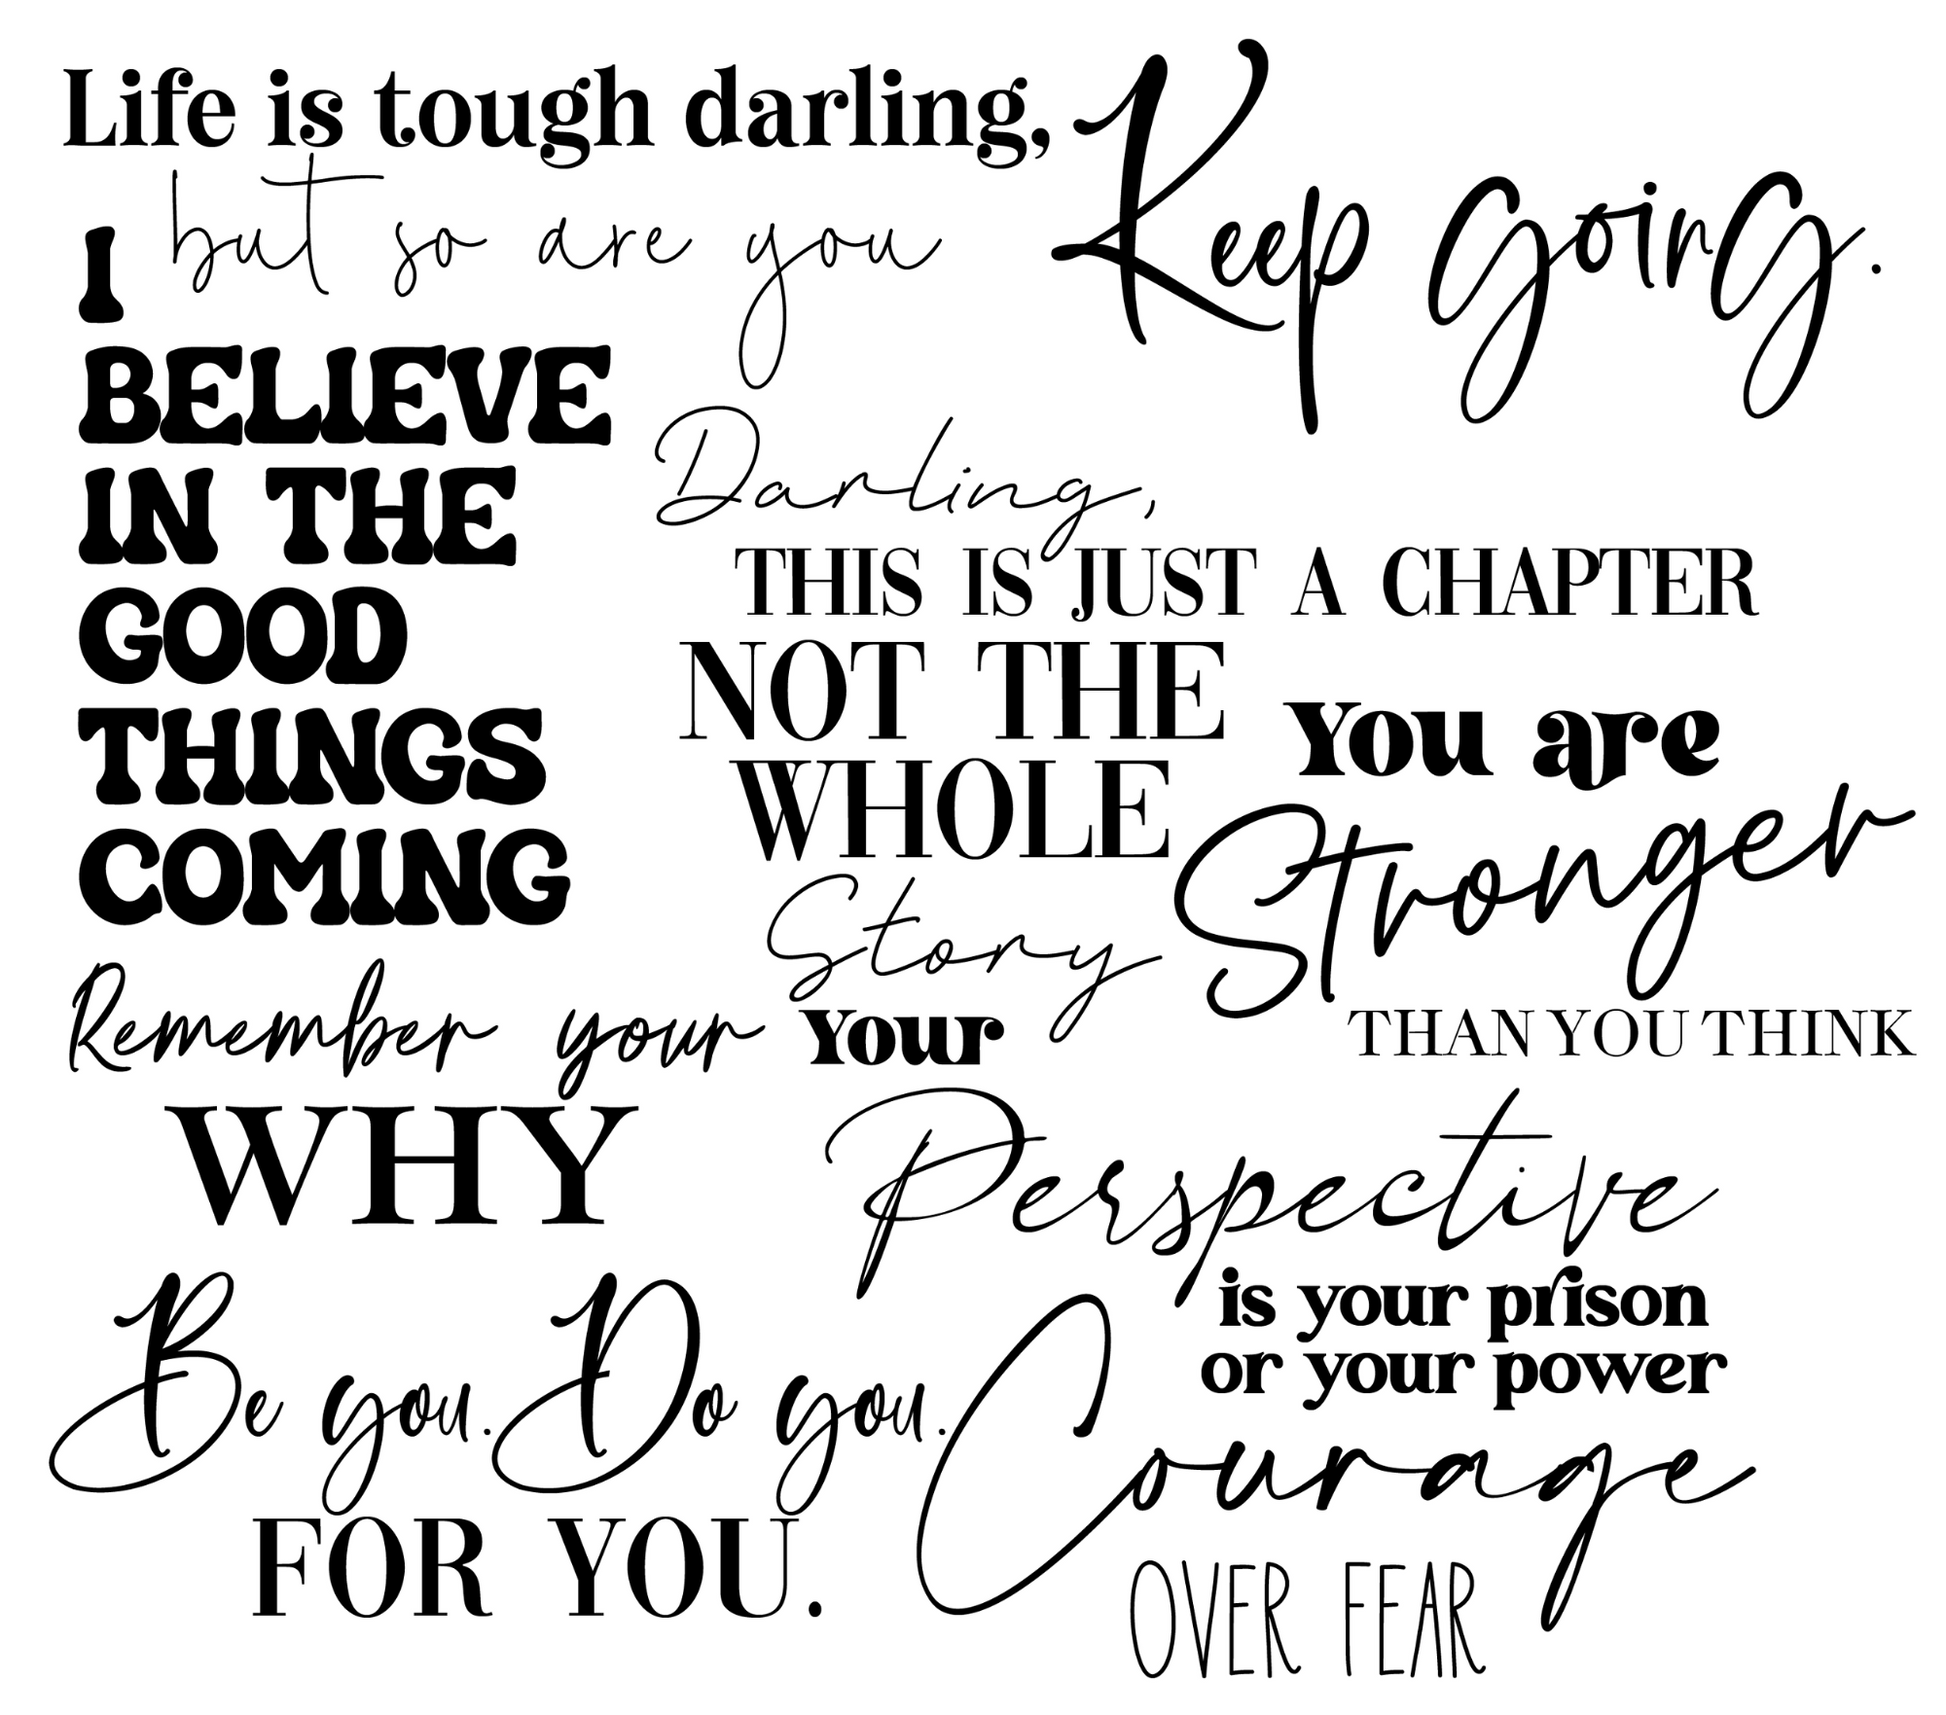 Life is tough darling,
but so are you
Keep going.
I
BELIEVE
IN THE
GOOD
THINGS
COMING
Darling,
THIS IS JUST A CHAPTER
NOT THE
WHOLE
Story
You are
Stronger
THAN YOU THINK
Remember your
WHY
Your
Perspective
is your prison
or your power
Be you. Do you.
FOR YOU.
Courage
OVER FEAR